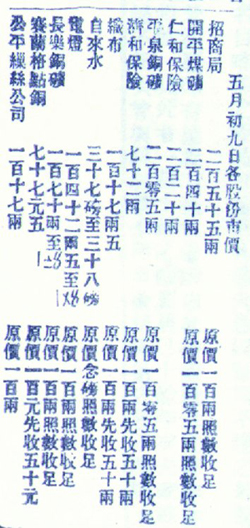 五月初九日各股份市價
招商局 二百五十五兩 原價一百兩照數收足
開平煤礦 二百四十兩 原價一百零五兩照數收足
仁和保險 二百二十兩
平泉銅礦 二百零五兩 原價一百零五兩照數收足
濟和保險 七十二兩 原價一百兩先收五十兩
織布 一百十七兩五 原價一百兩先收五十兩
自來水 三十七磅至三十八磅 原價念磅照數收足
電燈 一百四十二兩五至 原價一百兩照數收足
長樂銅礦 一百七十兩至 原價一百兩照數收足
賽蘭格點銅 七十七元五 原價一百元先收五十元
公平繅絲公司 一百十七兩 原價一百兩